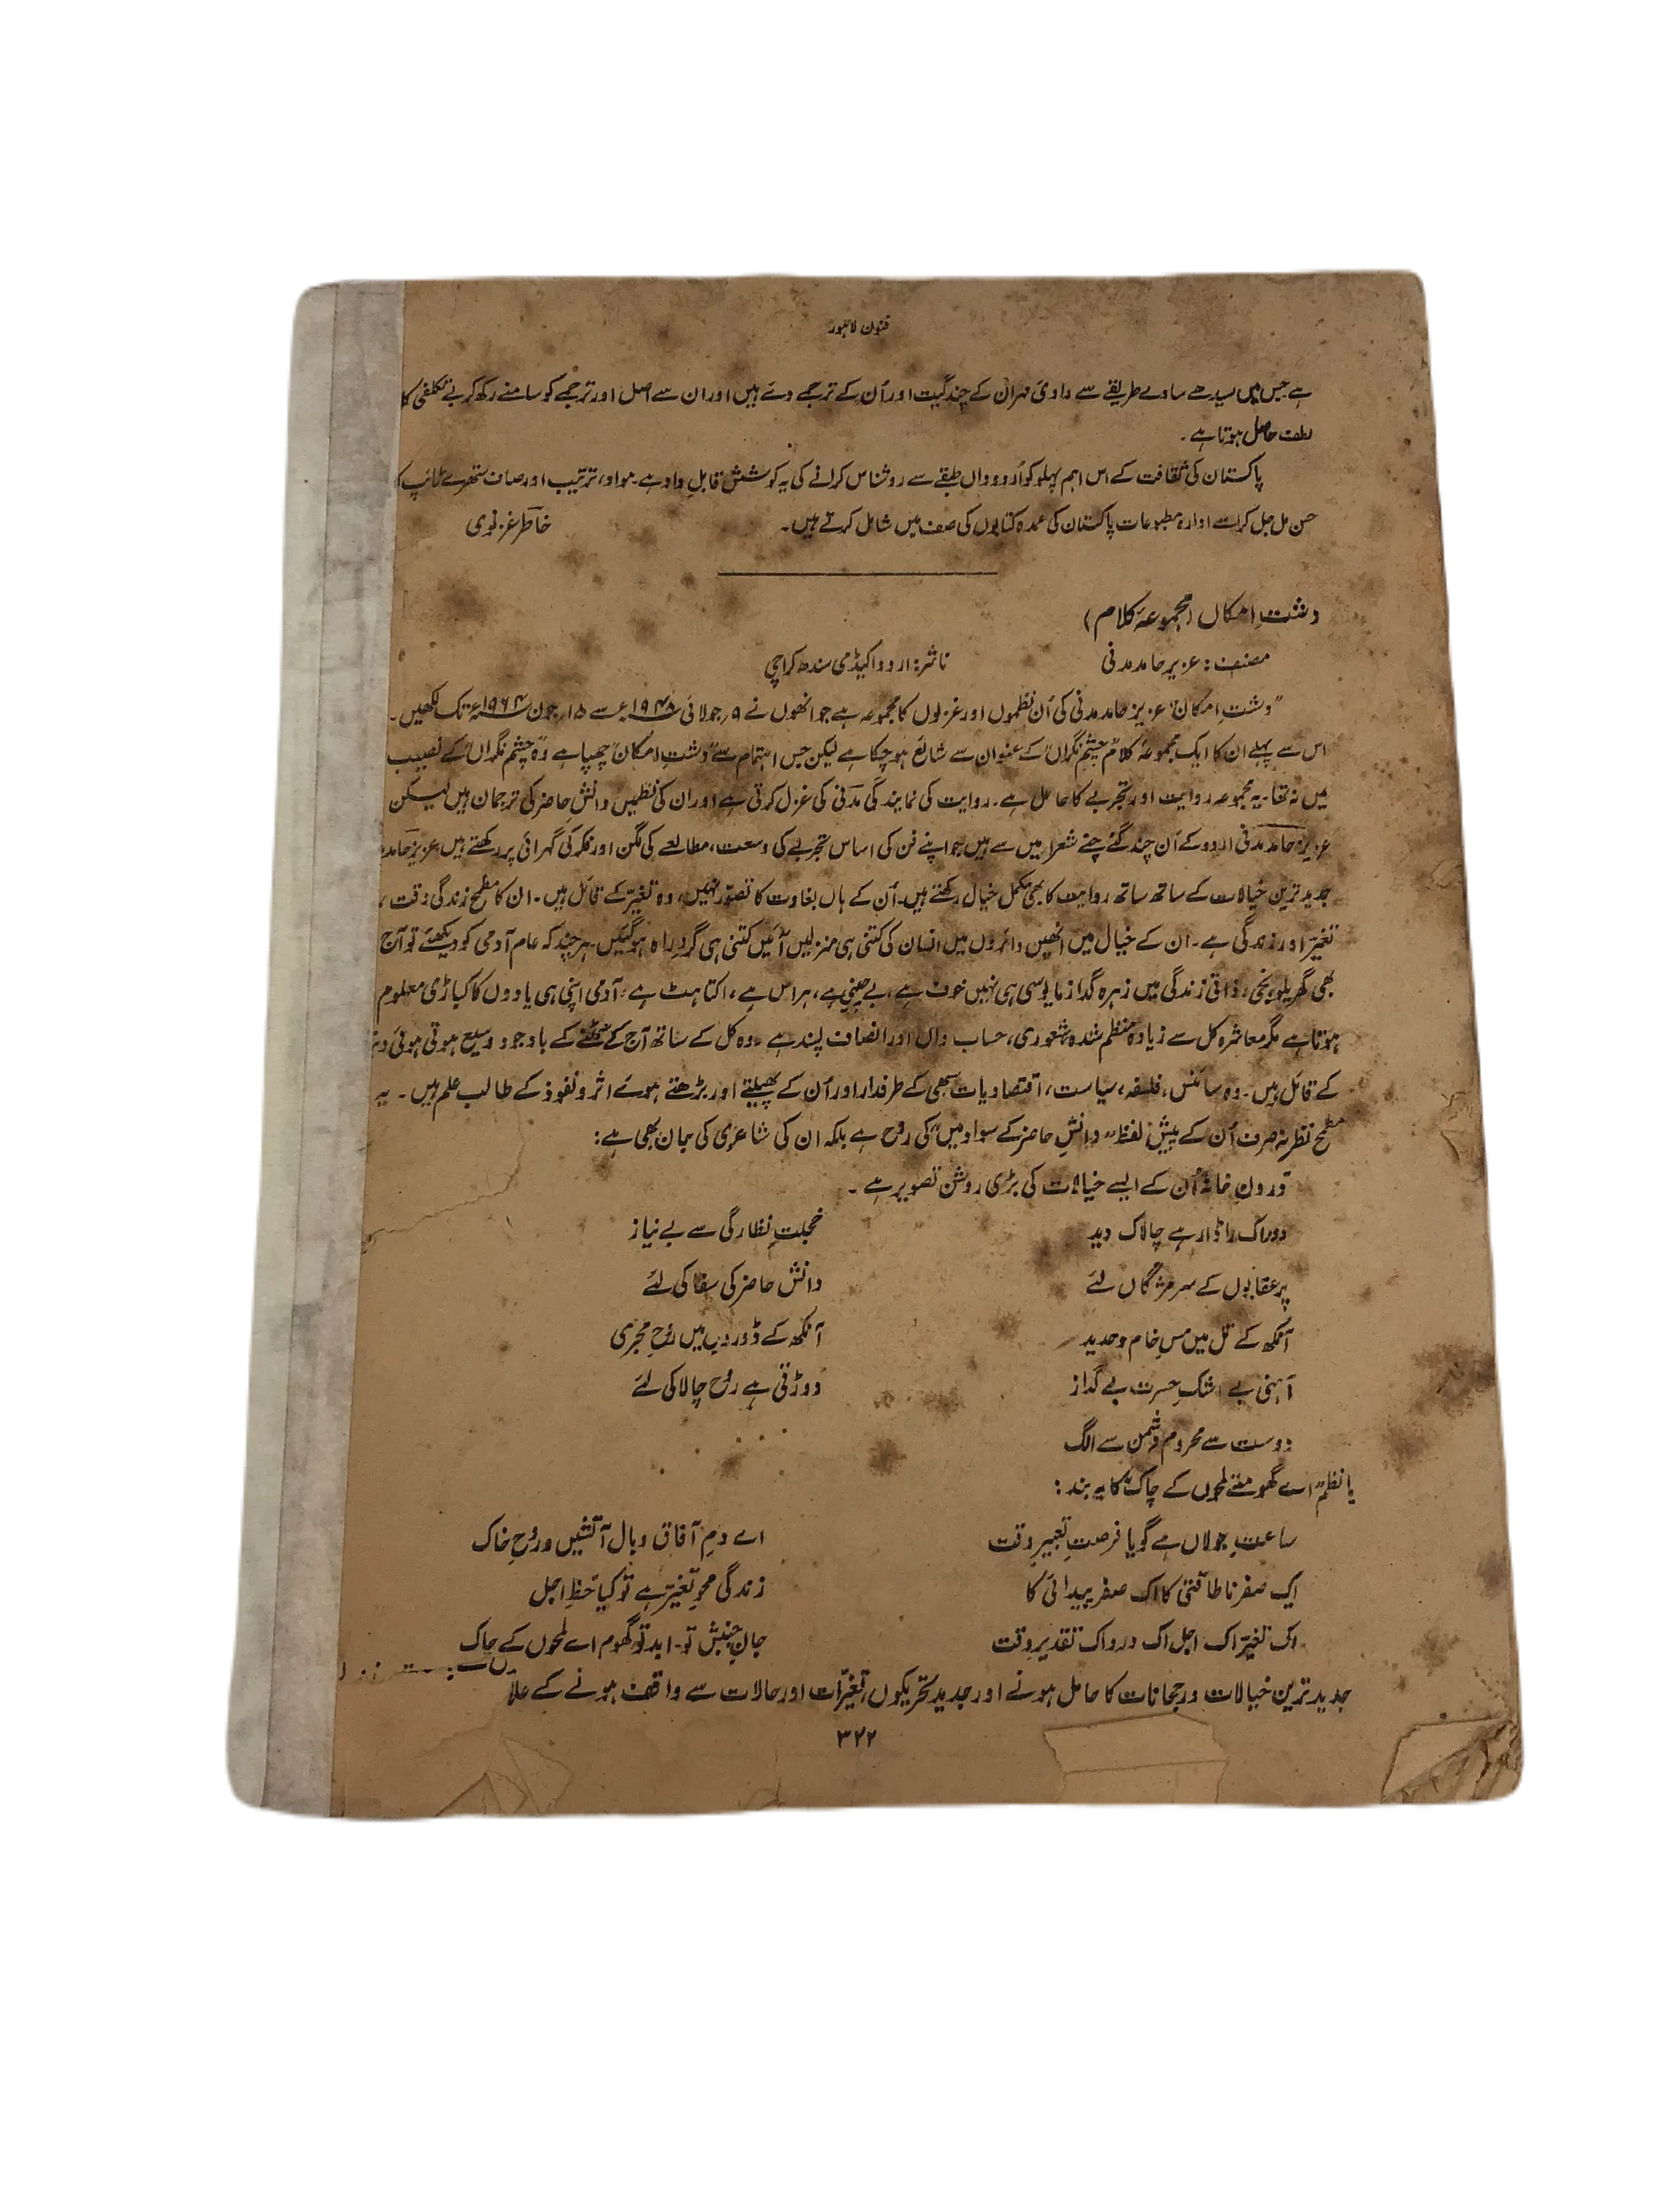 فنون لاہور
ہے جس میں سیدھے سادے طریقے سے وادیٔ مہران کے چند گیت اور اُن کے ترجمے دئے ہیں اور ان سے اصل اور ترجمے کو سامنے رکھ کر بے تکلفی کا
لطف حاصل ہوتا ہے۔
پاکستان کی ثقافت کے اس اہم پہلو کو اُردو داں طبقے سے روشناس کرانے کی یہ کوشش قابلِ داد ہے۔ مواد، ترتیب اور صاف ستھرے ٹائپ کا
حسن مل جل کر اسے ادارہ مطبوعات پاکستان کی عمدہ کتابوں کی صف میں شامل کرتے ہیں۔ خاطر غزنوی
دشتِ امکاں (مجموعۂ کلام)
مصنف: عزیز حامد مدنی ناشر: اردو اکیڈمی سندھ کراچی
"دشتِ امکاں" عزیز حامد مدنی کی اُن نظموں اور غزلوں کا مجموعہ ہے جو انھوں نے ۹؍جولائی ۱۹۴۸ء سے ۱۵؍جون ۱۹۶۴ء تک لکھیں۔
اس سے پہلے ان کا ایک مجموعۂ کلام "چشمِ نگراں" کے عنوان سے شائع ہو چکا ہے لیکن جس اہتمام سے "دشتِ امکاں" چھپا ہے وہ "چشمِ نگراں" کے نصیب
میں نہ تھا۔ یہ مجموعہ روایت اور تجربے کا حامل ہے۔ روایت کی نمایندگی مدنی کی غزل کرتی ہے اور ان کی نظمیں دانشِ حاضر کی ترجمان ہیں لیکن
عزیز حامد مدنی اردو کے اُن چند گئے چنے شعراء میں سے ہیں جو اپنے فن کی اساس تجربے کی وسعت، مطالعے کی لگن اور فکر کی گہرائی پر رکھتے ہیں۔ عزیز حامد
جدید ترین خیالات کے ساتھ ساتھ روایت کا بھی مکمل خیال رکھتے ہیں۔ اُن کے ہاں بغاوت کا تصور نہیں، وہ تغیّر کے قائل ہیں۔ ان کا مطمح زندگی وقت،
تغیّر اور زندگی ہے۔ ان کے خیال میں انھیں دائروں میں انسان کی کتنی ہی منزلیں آئیں کتنی ہی گردِ راہ ہو گئیں۔ ہر چند کہ عام آدمی کو دیکھئے تو آج
بھی گھریلو، نجی، ذاتی زندگی میں زہرہ گداز مایوسی ہی نہیں خوف ہے، بے چینی ہے، ہراس ہے، اکتاہٹ ہے، آدمی اپنی ہی یادوں کا کباڑی معلوم
ہوتا ہے مگر معاشرہ کل سے زیادہ منظم شدہ، شعوری، حساب داں اور انصاف پسند ہے۔ وہ کل کے ساتھ آج کے سمٹنے کے باوجود وسیع ہوتی ہوئی
کے قائل ہیں۔ وہ سائنس، فلسفہ، سیاست، اقتصادیات سبھی کے طرفدار اور اُن کے پھیلتے اور بڑھتے ہوئے اثر و نفوذ کے طالب علم ہیں۔ یہ
مطمح نظر نہ صرف اُن کے پیش لفظ "دانشِ حاضر کے سواد میں" کی روح ہے بلکہ ان کی شاعری کی جان بھی ہے:
"درونِ خانہ" اُن کے ایسے خیالات کی بڑی روشن تصویر ہے۔
دور اک راڈار ہے چالاک دید خجلتِ نظارگی سے بے نیاز
پر عقابوں کے سر مژگاں لئے دانش حاضر کی سفاکی لئے
آنکھ کے تل میں مسِ خام و حدید آنکھ کے ڈوروں میں روحِ مجرمی
آہنی بے اشکِ حسرت بے گداز دوڑتی ہے روح چالاکی لئے
دوست سے محروم دشمن سے الگ . . . .
یا نظم "اے گھومتے لمحوں کے چاک" کا یہ بند:
ساعتِ جولاں ہے گویا فرصتِ تعبیرِ وقت اے دمِ آفاق و بال آتشیں و روحِ خاک
ایک صفر ناطاقتی کا اک صفر پیدائی کا زندگی محوِ تغیّر ہے تو کیا حظِ اجل
اک تغیّر اک اجل اک درد اک تقدیرِ وقت جانِ جنبش تو۔ ابد تو گھوم اے لمحوں کے چاک
جدید ترین خیالات و رجحانات کا حامل ہونے اور جدید تحریکوں، تغیّرات اور حالات سے واقف ہونے کے علا
۳۲۲